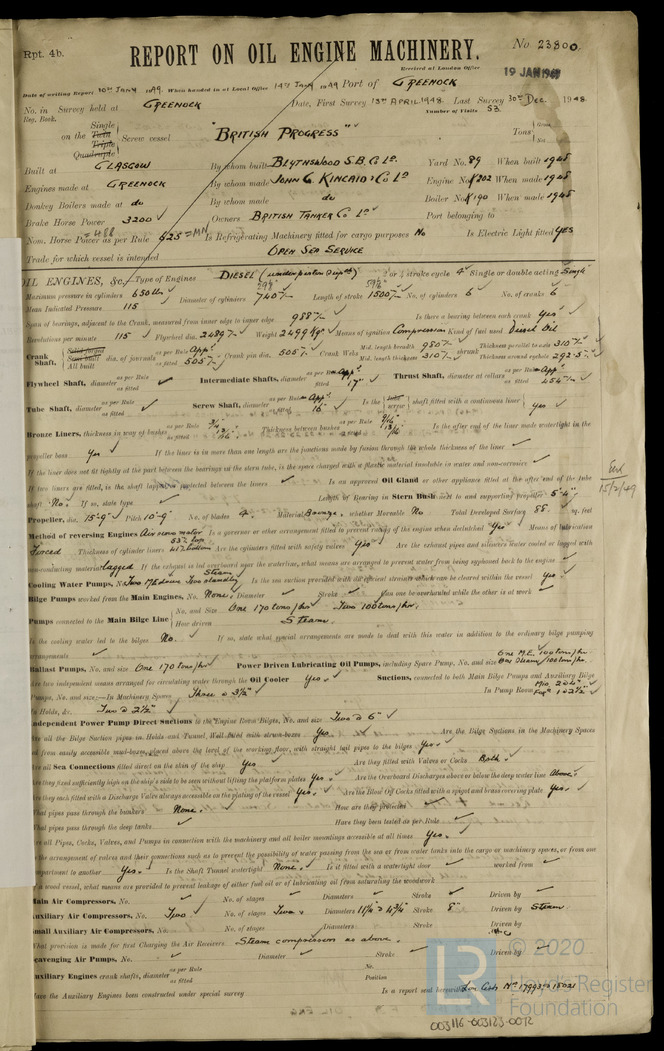 Rpt. 4b.
REPORT ON OIL ENGINE MACHINERY.
No 23800.
Received at London Office
19 JAN 1949
Date of writing Report 10th Jany 1949. When handed in at Local Office 14th Jany 1949 Port of GREENOCK
No. in Survey held at GREENOCK Date, First Survey 13th APRIL 1948. Last Survey 30th Dec. 1948
Reg. Book. Number of Visits 53.
Single
on the Twin Screw vessel "BRITISH PROGRESS"
Triple
Quadruple
Tons Gross
Net
Built at GLASGOW By whom built BLYTHSWOOD S.B. Co Ld. Yard No. 89 When built 1948
Engines made at GREENOCK By whom made JOHN G. KINCAID & Co Ld Engine No. K202 When made 1948
Donkey Boilers made at do By whom made do Boiler No. K190 When made 1948
Brake Horse Power 3200 Owners BRITISH TANKER Co Ld Port belonging to
= 488
Nom. Horse Power as per Rule 625 = MN Is Refrigerating Machinery fitted for cargo purposes No Is Electric Light fitted YES
Trade for which vessel is intended OPEN SEA SERVICE
OIL ENGINES, &c. Type of Engines DIESEL 2 or 4 stroke cycle 4 Single or double acting Single
Maximum pressure in cylinders 650 lbs Diameter of cylinders 740 Length of stroke 1500 No. of cylinders 6 No. of cranks 6
Mean Indicated Pressure 115
Span of bearings, adjacent to the Crank, measured from inner edge to inner edge 988 Is there a bearing between each crank Yes
Revolutions per minute 115 Flywheel dia. 2489 Weight 2499 Kg Means of ignition Compression Kind of fuel used Diesel Oil
Crank Shaft, Solid forged Semi built All built dia. of journals as per Rule App. as fitted 505 Crank pin dia. 505 Crank Webs Mid. length breadth 980 Mid. length thickness 310 shrunk Thickness parallel to axis 310 Thickness around eyehole 292.5
Flywheel Shaft, diameter as per Rule as fitted Intermediate Shafts, diameter as per Rule App. as fitted 17" Thrust Shaft, diameter at collars as per Rule App. as fitted 454
Tube Shaft, diameter as per Rule as fitted Screw Shaft, diameter as per Rule App. as fitted 16" Is the tube screw shaft fitted with a continuous liner Yes
Bronze Liners, thickness in way of bushes as per Rule as fitted Thickness between bushes as per Rule 9/16 as fitted Is the after end of the liner made watertight in the
propeller boss Yes If the liner is in more than one length are the junctions made by fusion through the whole thickness of the liner
If the liner does not fit tightly at the part between the bearings in the stern tube, is the space charged with a plastic material insoluble in water and non-corrosive
If two liners are fitted, is the shaft lapped or protected between the liners Is an approved Oil Gland or other appliance fitted at the after end of the tube
shaft No. If so, state type Length of Bearing in Stern Bush next to and supporting propeller 5'-4"
Propeller, dia. 15'-9" Pitch 10'-9" No. of blades 4 Material Bronze whether Moveable No Total Developed Surface 88 sq. feet
Method of reversing Engines Air servo motor Is a governor or other arrangement fitted to prevent racing of the engine when declutched Yes Means of lubrication
Forced Thickness of cylinder liners Are the cylinders fitted with safety valves Yes Are the exhaust pipes and silencers water cooled or lagged with
non-conducting material Lagged If the exhaust is led overboard near the waterline, what means are arranged to prevent water from being syphoned back to the engine
Cooling Water Pumps, No. Two M.E. down Two steam standby Is the sea suction provided with an efficient strainer which can be cleared within the vessel Yes
Bilge Pumps worked from the Main Engines, No. None Diameter Stroke Can one be overhauled while the other is at work
Pumps connected to the Main Bilge Line No. and Size One 170 tons/hr. Two 100 tons/hr.
How driven Steam.
Is the cooling water led to the bilges No. If so, state what special arrangements are made to deal with this water in addition to the ordinary bilge pumping
arrangements
Ballast Pumps, No. and size One 170 tons/hr Power Driven Lubricating Oil Pumps, including Spare Pump, No. and size One M.E. 100 tons/hr. One Steam 100 tons/hr.
Are two independent means arranged for circulating water through the Oil Cooler Yes Suctions, connected to both Main Bilge Pumps and Auxiliary Bilge
Pumps, No. and size:—In Machinery Spaces Three @ 3½" In Pump Room
In Holds, &c. Two @ 2½"
Independent Power Pump Direct Suctions to the Engine Room Bilges, No. and size Two @ 6"
Are all the Bilge Suction pipes in Holds and Tunnel Well fitted with strum-boxes Yes. Are the Bilge Suctions in the Machinery Spaces
led from easily accessible mud-boxes, placed above the level of the working floor, with straight tail pipes to the bilges Yes.
Are all Sea Connections fitted direct on the skin of the ship Yes Are they fitted with Valves or Cocks Both.
Are they fixed sufficiently high on the ship's side to be seen without lifting the platform plates Yes. Are the Overboard Discharges above or below the deep water line Above.
Are they each fitted with a Discharge Valve always accessible on the plating of the vessel Yes. Are the Blow Off Cocks fitted with a spigot and brass covering plate Yes.
What pipes pass through the bunkers None. How are they protected
What pipes pass through the deep tanks Have they been tested as per Rule
Are all Pipes, Cocks, Valves, and Pumps in connection with the machinery and all boiler mountings accessible at all times Yes.
Is the arrangement of valves and their connections such as to prevent the possibility of water passing from the sea or from water tanks into the cargo or machinery spaces, or from one
compartment to another Yes. Is the Shaft Tunnel watertight None. Is it fitted with a watertight door worked from
If a wood vessel, what means are provided to prevent leakage of either fuel oil or of lubricating oil from saturating the woodwork
Main Air Compressors, No. No. of stages Diameters Stroke Driven by
Auxiliary Air Compressors, No. Two No. of stages Two Diameters 11¼" & 4¾" Stroke 8" Driven by Steam.
Small Auxiliary Air Compressors, No. No. of stages Diameters Stroke Driven by
What provision is made for first Charging the Air Receivers Steam compressors as above.
Scavenging Air Pumps, No. Diameter Stroke Driven by
Auxiliary Engines crank shafts, diameter as per Rule as fitted No. Position
Have the Auxiliary Engines been constructed under special survey Is a report sent herewith
15/2/49
LR
© 2020
Lloyd's Register
Foundation
003116-003123-0072